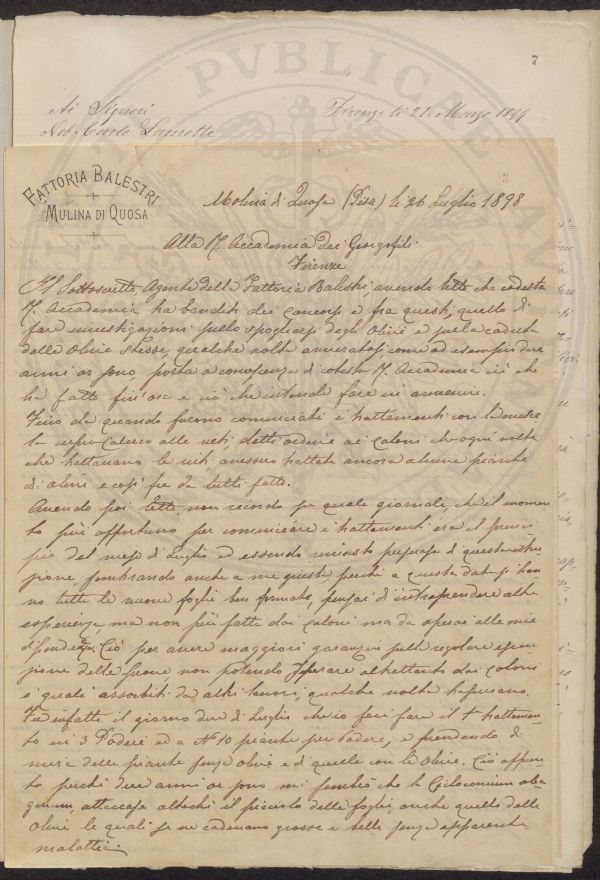 PVBLICAE
7
Ai Signori
Firenze li 21 Marzo 1899
Nob Carlo
FATTORIA BALESTRI
MULINA DI QUOSA
Molina di Quosa (Pisa) li 26 Luglio 1898
Alla R. Accademia dei Georgofili
Firenze
Il Sottoscritto Agente della Fattoria Balestri, avendo letto che codesta
R. Accademia ha banditi dei concorsi e fra questi, quello di
fare investigazioni sullo spogliarsi degli Olivi e sulla caduta
delle Olive stesse, qualche volta avveratasi come ad esempio due
anni or sono, porta a conoscenza di cotesta R. Accademia ciò che
ha fatto fin'ora e ciò che intende fare in avvenire.
Fino da quando furono cominciati i trattamenti con la miscela
cupro-calcica alle viti, detti ordine ai coloni che ogni volta
che trattavano le viti avessero trattate ancora alcune piante
di Olivi e così fu da tutti fatto.
Avendo poi letto, non ricordo su quale giornale, che il momen
to più opportuno per cominciare i trattamenti era il princi
pio del mese di Luglio ed essendo rimasto persuaso di questa istru
zione, sembrando anche a me giusta perchè a questa data si han
no tutte le nuove foglie ben formate, pensai d'intraprendere altre
esperienze ma non più fatte dai coloni ma da operai alle mie
dipendenze. Ciò per avere maggiori garanzie sulla regolare esecu
zione delle prove non potendo sperare altrettanto dai coloni
i quali assorbiti da altri lavori, qualche volta trapassano.
Fu infatti il giorno due di Luglio che io feci fare il trattamen
to in 3 Poderi ed a N° 10 piante per Podere, e prendendo di
mira delle piante senza olive e di quelle con le olive. Ciò appun
to perchè due anni or sono mi sembrò che il Cicloconium ole
ginum, attaccasse altrechè il picciolo delle foglie, anche quello delle
Olive le quali se ne cadevano grosse e belle senza apparente
malattia.